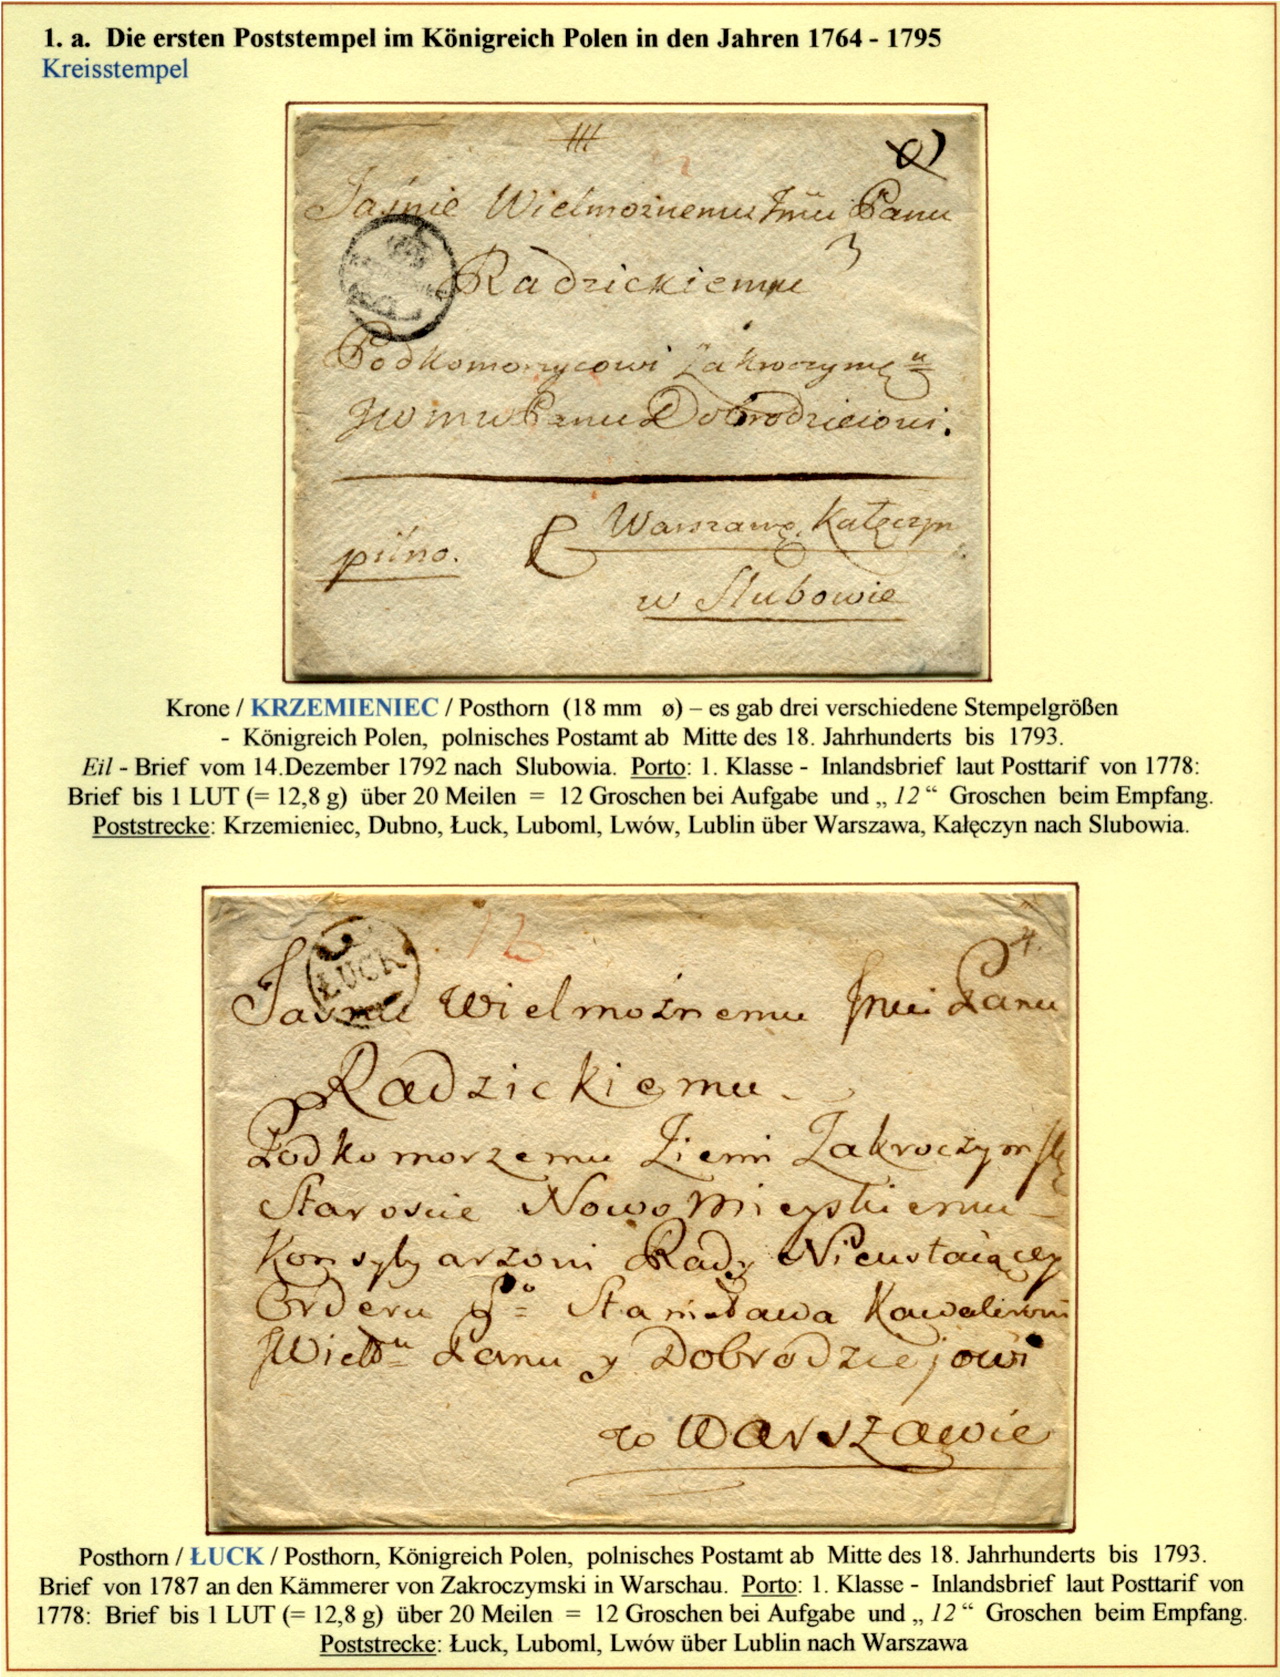 1. a. Die ersten Poststempel im Königreich Polen in den Jahren 1764 - 1795
Kreisstempel
Jaśnie Wielmożnemu Jmu Panu
Radzickiemu
Podkomorzycowi Zakroczym
Panu Dobrodzieiowi.
Warszawę, Kałęczyn
pilno.
w Slubowie
Krone / KRZEMIENIEC / Posthorn (18 mm ø) – es gab drei verschiedene Stempelgrößen
- Königreich Polen, polnisches Postamt ab Mitte des 18. Jahrhunderts bis 1793.
Eil - Brief vom 14.Dezember 1792 nach Slubowia. Porto: 1. Klasse - Inlandsbrief laut Posttarif von 1778:
Brief bis 1 LUT (= 12,8 g) über 20 Meilen = 12 Groschen bei Aufgabe und „ 12 “ Groschen beim Empfang.
Poststrecke: Krzemieniec, Dubno, Łuck, Luboml, Lwów, Lublin über Warszawa, Kałęczyn nach Slubowia.
12
ŁUCK
Jaśnie Wielmożnemu Jmci Panu
Radzickiemu
Podkomorzemu Ziemi Zakroczymsk
Staroscie NowoMieyskiemu
Konsylyarzowi Rady Nieustaiącey
Orderu Sº Stanisława Kawalerowi
Panu y Dobrodziejowi
w Warszawie
Posthorn / ŁUCK / Posthorn, Königreich Polen, polnisches Postamt ab Mitte des 18. Jahrhunderts bis 1793.
Brief von 1787 an den Kämmerer von Zakroczymski in Warschau. Porto: 1. Klasse - Inlandsbrief laut Posttarif von
1778: Brief bis 1 LUT (= 12,8 g) über 20 Meilen = 12 Groschen bei Aufgabe und „ 12 “ Groschen beim Empfang.
Poststrecke: Łuck, Luboml, Lwów über Lublin nach Warszawa